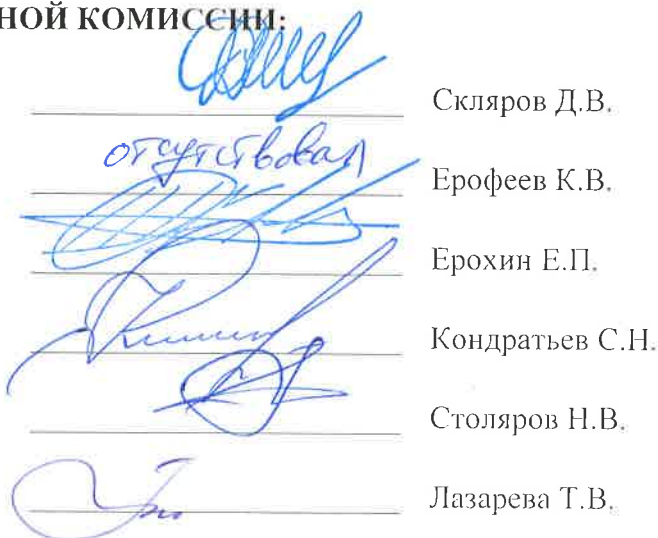 НОЙ КОМИССИИ:
Скляров Д.В.
отсутствовал
Ерофеев К.В.
Ерохин Е.П.
Кондратьев С.Н.
Столяров Н.В.
Лазарева Т.В.